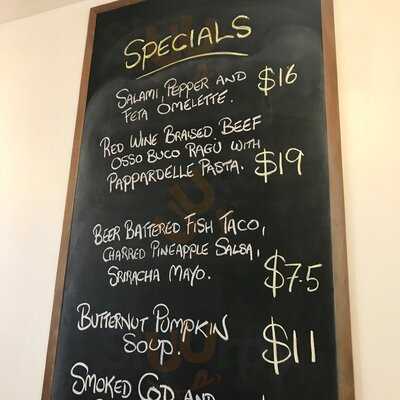 SPECIALS
SALAMI, PEPPER AND $16
FETA OMELETTE.
RED WINE BRAISED BEEF
OSSO BUCO RAGÙ WITH
PAPPARDELLE PASTA. $19
BEER BATTERED FISH TACO,
CHARRED PINEAPPLE SALSA,
SRIRACHA MAYO. $7.5
BUTTERNUT PUMPKIN
SOUP. $11
SMOKED COD AND